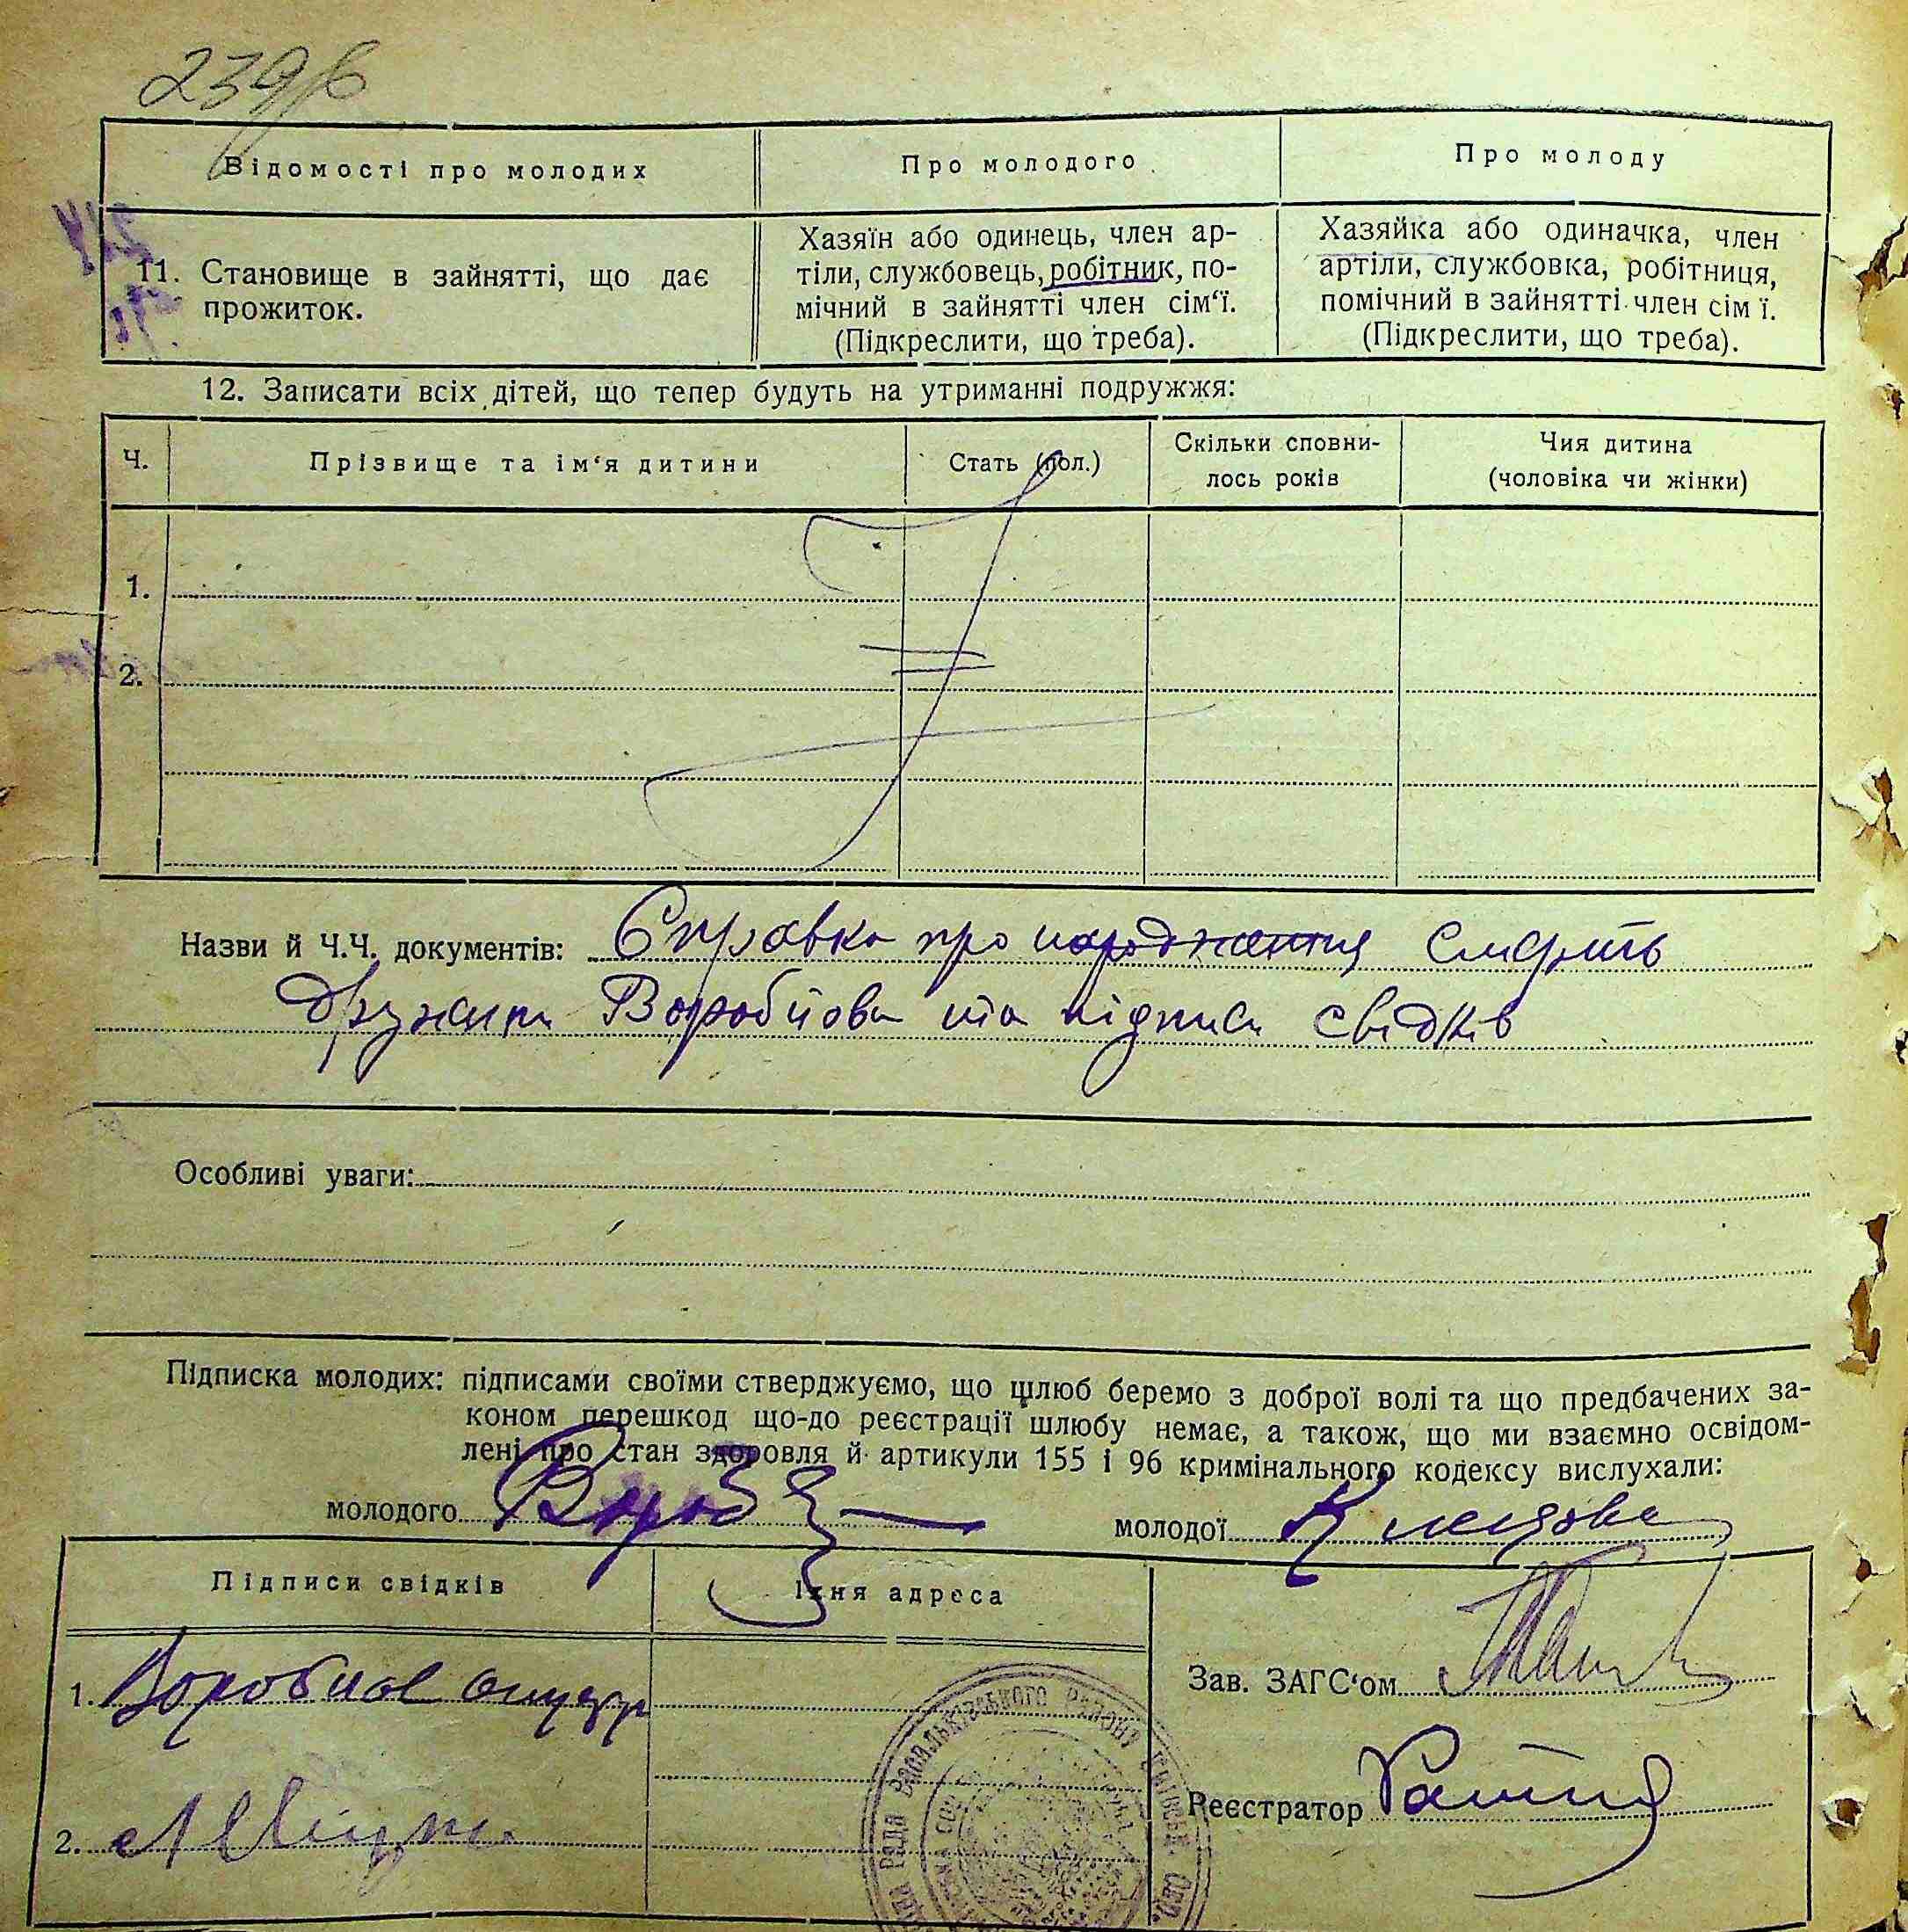 239/в
Відомості про молодих
Про молодого
Про молоду
11. Становище в зайнятті, що дає
прожиток.
Хазяїн або одинець, член ар-
тіли, службовець, робітник, по-
мічний в зайнятті член сім‘ї.
(Підкреслити, що треба).
Хазяйка або одиначка, член
артіли, службовка, робітниця,
помічний в зайнятті член сім ї.
(Підкреслити, що треба).
12. Записати всіх дітей, що тепер будуть на утриманні подружжя:
Ч.
Прізвище та ім‘я дитини
Стать (пол.)
Скільки сповни-
лось років
Чия дитина
(чоловіка чи жінки)
1.
2.
Назви й Ч.Ч. документів: Справка про народження смерть
дружини Воробйова та підписи свідків
Особливі уваги:
Підписка молодих: підписами своїми стверджуємо, що шлюб беремо з доброї волі та що предбачених за-
коном перешкод що-до реєстрації шлюбу немає, а також, що ми взаємно освідом-
лені про стан здоровля й артикули 155 і 96 кримінального кодексу вислухали:
молодого
молодої
Підписи свідків
Їхня адреса
1. Воробйов
2.
Зав. ЗАГС‘ом
Реєстратор
рада Васильківського району